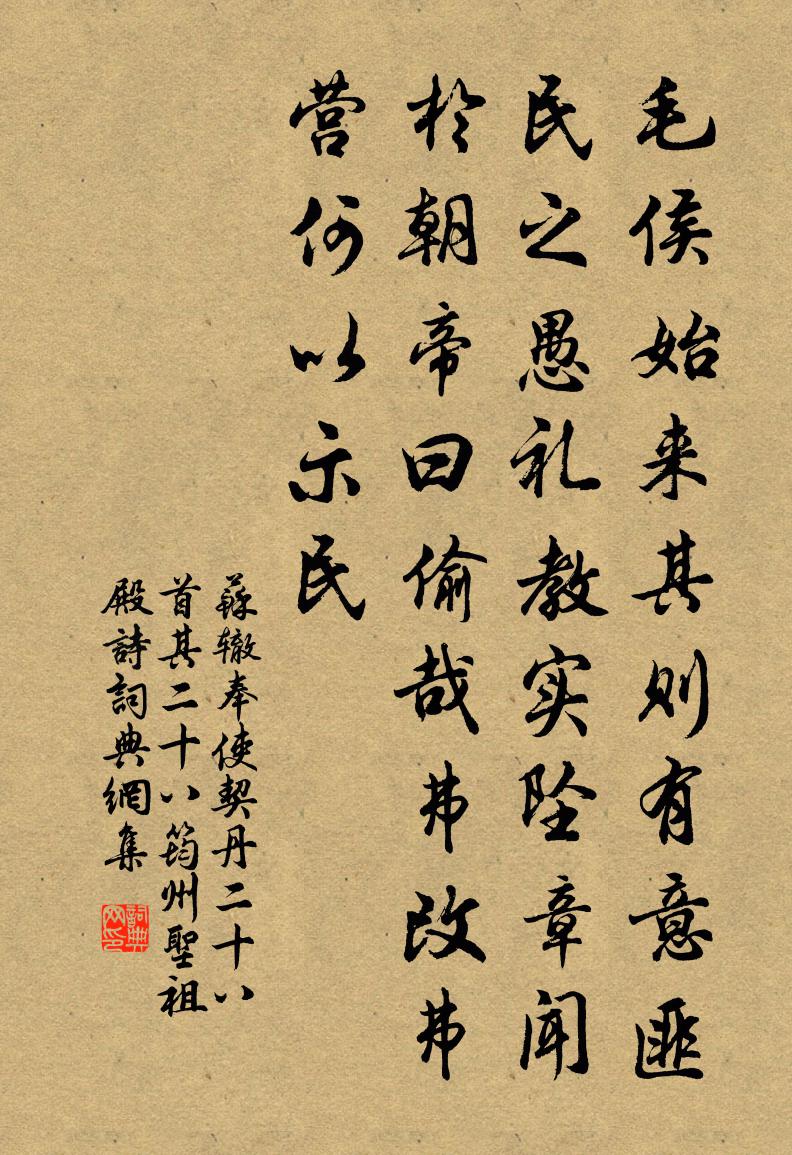 毛侯始来其则有意匪
民之愚礼教实坠章闻
於朝帝曰偷哉弗改弗
营何以示民
蘇辙奉使契丹二十八
首其二十八筠州聖祖
殿詩詞典網集
詞典
网印